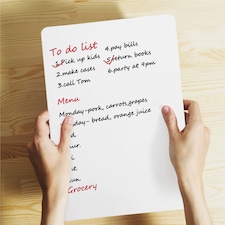 To do list
1. Pick up kids
2. make cases
3. call Tom
4. pay bills
5. return books
6. party at 9pm
Menu
Monday-pork, carrots, grapes
day- bread, orange juice
Grocery